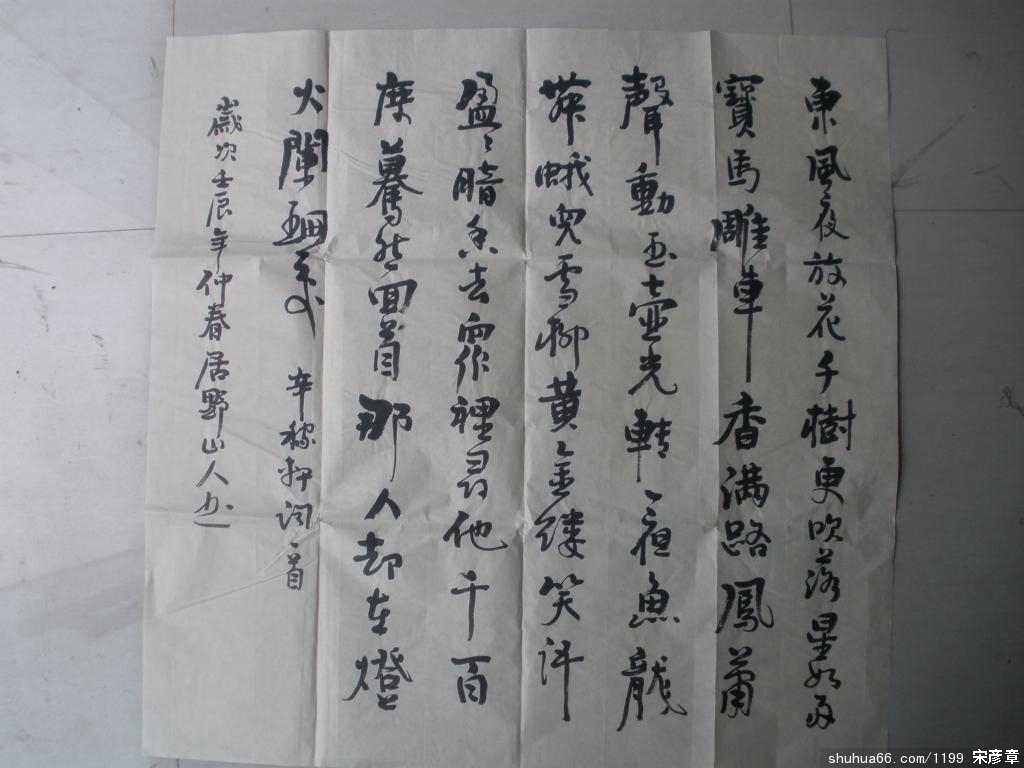 東風夜放花千樹更吹落星如雨
寶馬雕車香满路鳳蕭
聲動玉壺光轉一夜魚龍
舞蛾兒雪柳黄金缕笑许
盈々暗香去衆裡尋他千百
度驀然回首那人却在燈
火闌珊處 辛稼軒词一首
歲次壬辰年仲春居野山人书
shuhua66.com/1199 宋彦章